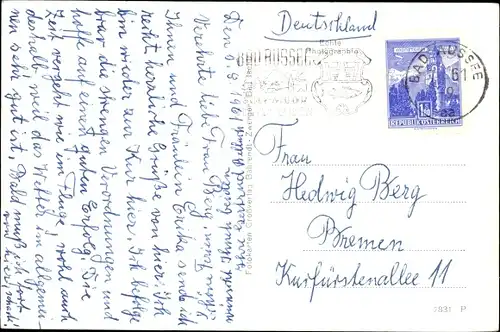 Deutschland
Den 5. 9. 1961
Verehrte liebe Frau Berg,
Ihnen und Fräulein Erika sende ich
recht herzliche Grüße von hier. Ich
bin wieder zur Kur hier. Ich befolge
brav die strengen Verordnungen und
hoffe auf einen guten Erfolg. Die
Zeit vergeht wie im Fluge, wohl auch
deshalb weil das Wetter im allgemei-
nen sehr gut ist. Bald muß ich fort
von hier, schade!
BAD AUSSEE
BAD AUSSEE
61
REPUBLIK ÖSTERREICH
Frau
Hedwig Berg
Bremen
Kurfürstenallee 11
2831 P